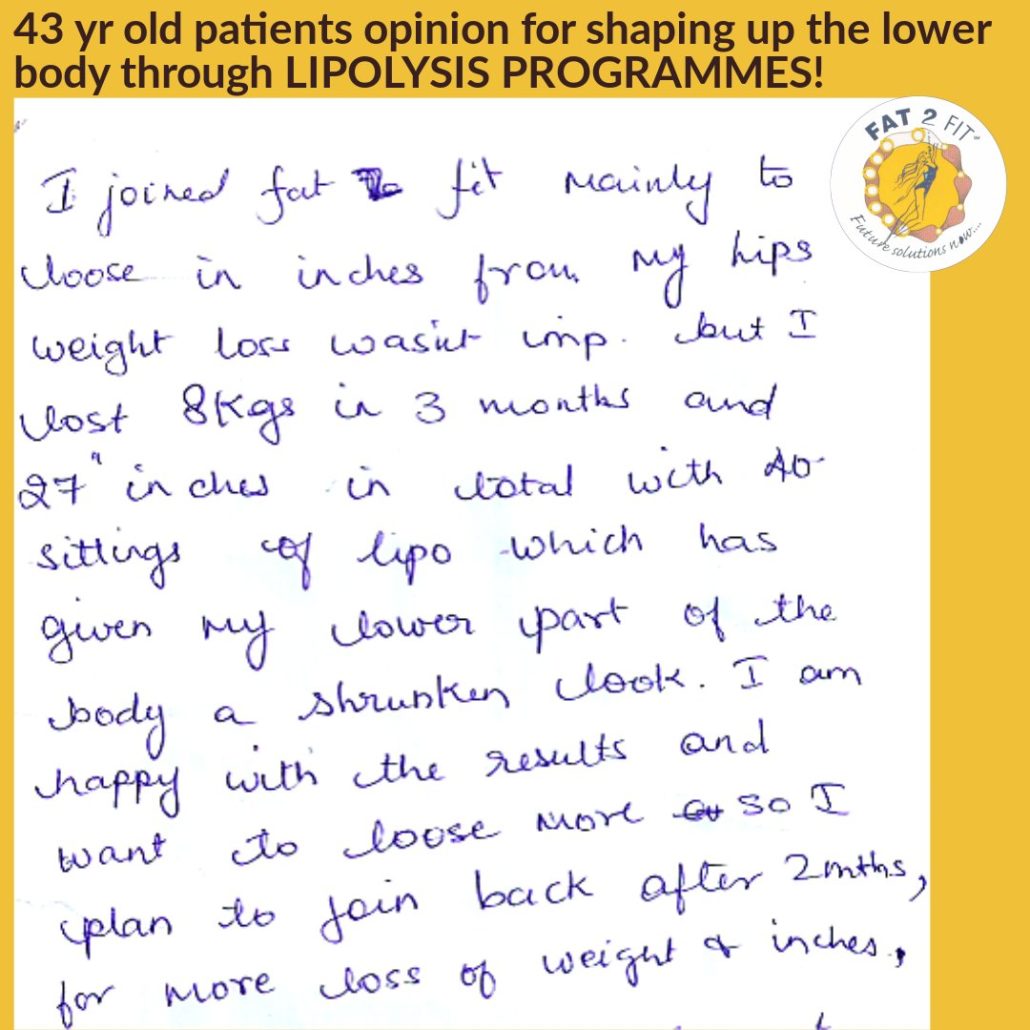 43 yr old patients opinion for shaping up the lower
body through LIPOLYSIS PROGRAMMES!
FAT 2 FIT
Future solutions now....
I joined fat to fit mainly to
loose in inches from my hips
weight loss wasn't imp. but I
lost 8Kgs in 3 months and
27" inches in total with 40
sittings of lipo which has
given my lower part of the
body a shrunken look. I am
happy with the results and
want to loose more so I
plan to join back after 2mths,
for more loss of weight & inches.,